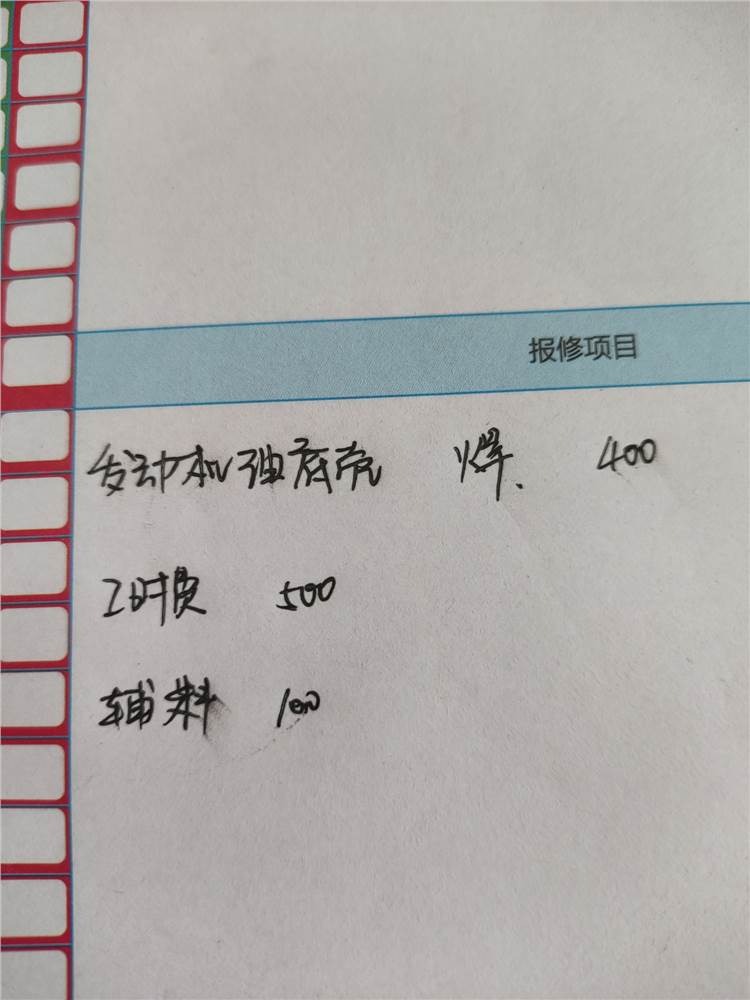 报修项目
发动机油底壳 焊、 400
工时费 500
辅料 100